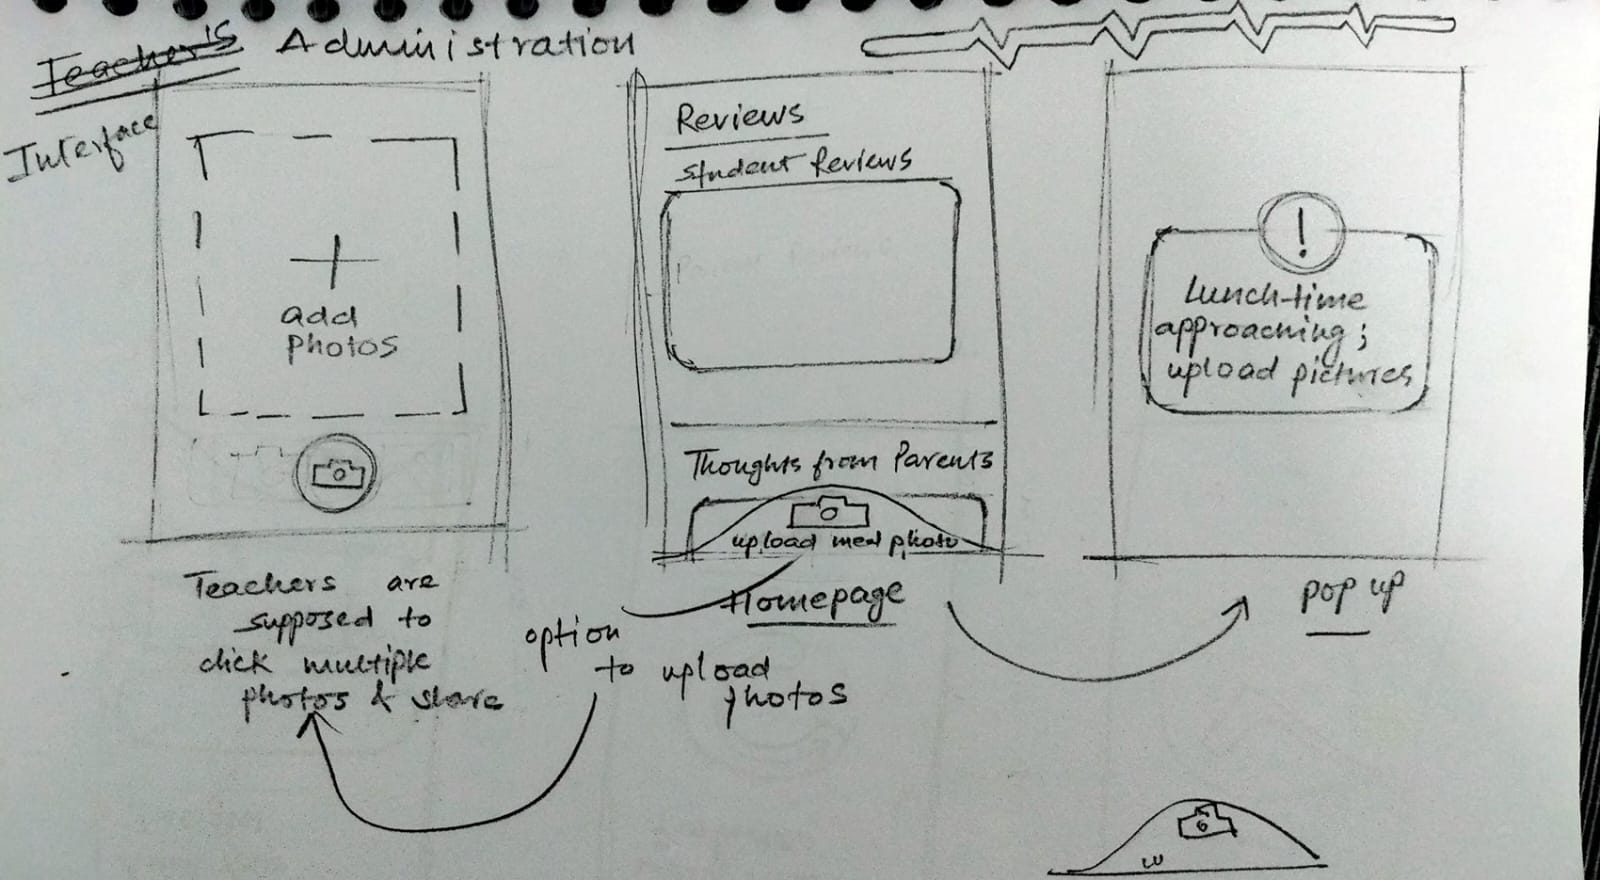 Teacher's Administration
Interface
add
photos
Teachers are
supposed to
click multiple
photos & share
Reviews
Student Reviews
Thoughts from Parents
upload meal photo
Homepage
option
to upload
photos
!
Lunch-time
approaching;
upload pictures
pop up